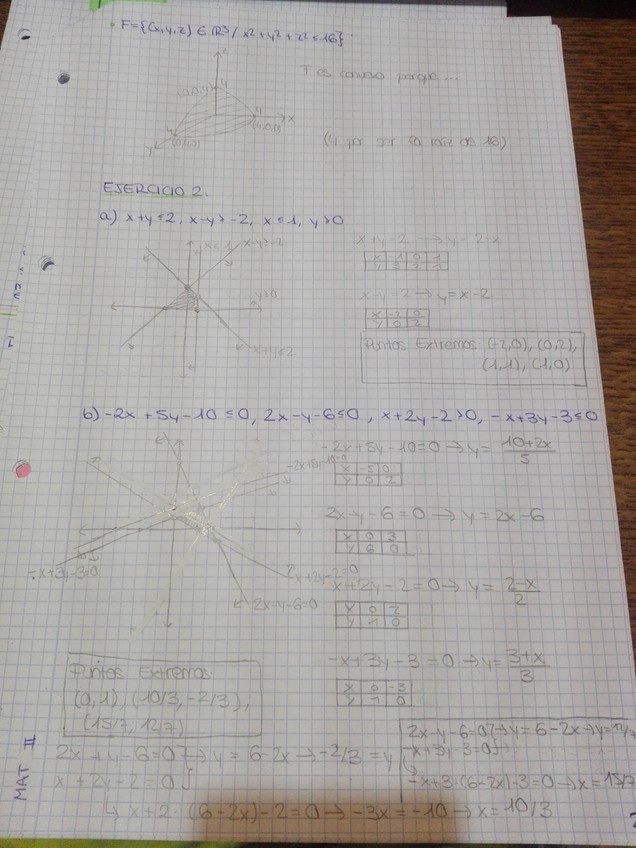 F={(x,y,z) ∈ R³/ x²+y²+z² ≤16}
z
4
(0,0,4)
4
x
(4,0,0)
4
y
(0,4,0)
F es convexo porque ...
(4 por ser la raíz de 16)
EJERCICIO 2.
a) x+y≤2, x-y≥-2, x≤1, y≥0
x≤1
x-y≥-2
y≥0
x+y≤2
x+y=2 → y=2-x
x
0
1
y
x-y=-2 → y=x-2
x -2 0
y 0 2
Puntos Extremos: (-2,0), (0,2),
(1,1), (1,0)
b) -2x+5y-10≤0, 2x-y-6≤0, x+2y-2≥0, -x+3y-3≤0
-2x+5y-10=0 → y= 10+2x / 5
x -5 0
y 0 2
2x-y-6=0 → y=2x-6
x 0 3
y 6 0
-x+3y-3=0
x+2y-2=0
2x-y-6=0
x+2y-2=0 → y= 2-x / 2
x 0 2
y 1 0
-x+3y-3=0 → y= 3+x / 3
x 0 -3
y 1 0
Puntos Extremos:
(0,1), (10/3,-2/3),
(15/7, 12/7)
2x+y-6=0} → y=6-2x → -2/3=y
x+2y-2=0}
↳ x+2·(6-2x)-2=0 → -3x=-10 → x=10/3
2x-y-6=0} → y=6-2x → y=12/7
-x+3y-3=0}
↳ -x+3·(6-2x)-3=0 → x=15/7
MAT II